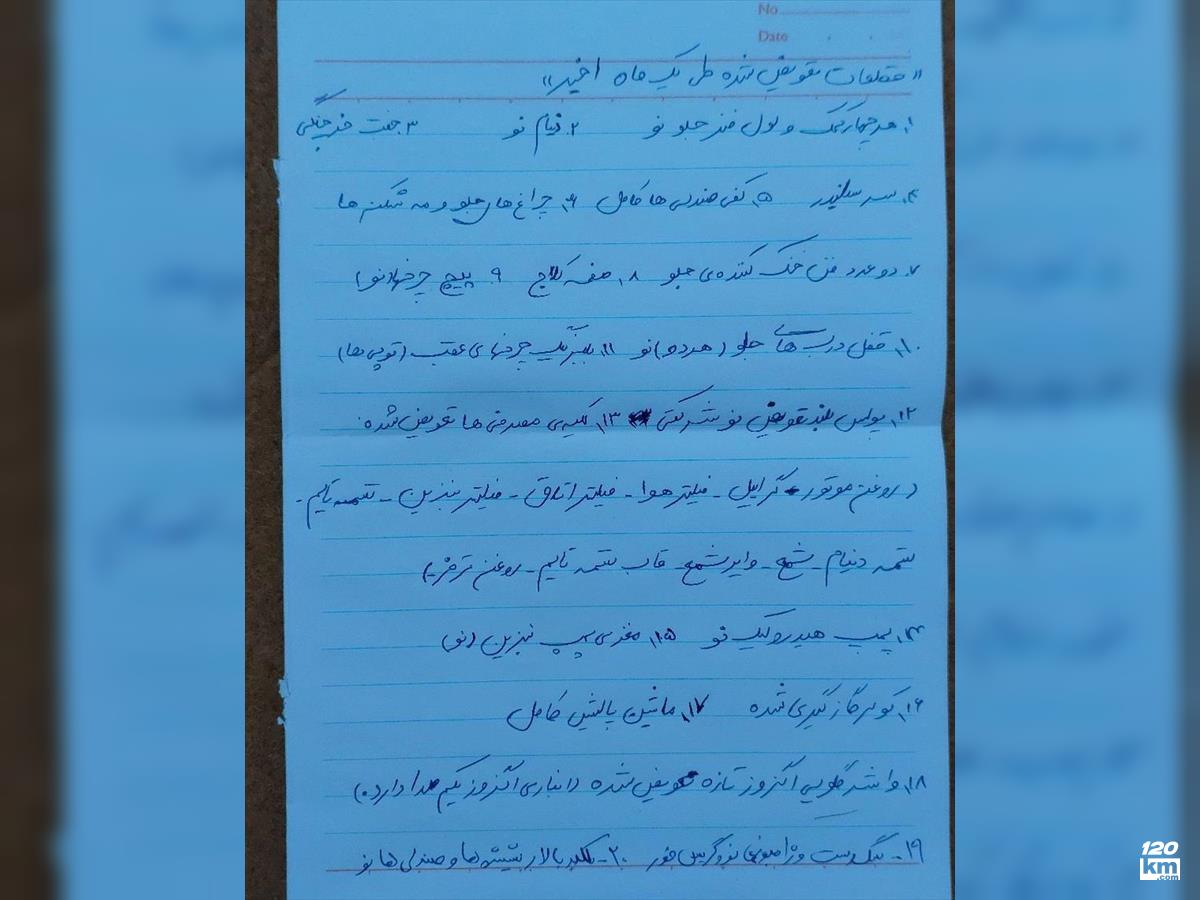 No
Date
«متعلقات تعویض شده طی یک ماه اخیر»
۱. هر چهار کمک و لول فنر جلو نو ۲. دینام نو ۳. جفت خرچنگی
۴. سر سیلندر ۵. کفی صندلی ها کامل ۶. چراغ های جلو و مه شکن ها
۷. دو عدد فن خنک کننده ی جلو ۸. صفحه کلاچ ۹. پیچ چرخها (نو)
۱۰. قفل درب های جلو (هر دو) نو ۱۱. بلبرینگ چرخهای عقب (توپی ها)
۱۲. بوش تعویض نو شرکتی ۱۳. کلیه ی مصرفی ها تعویض شده.
(روغن موتور - گیربکس - فیلتر هوا - فیلتر اتاق - فیلتر بنزین - تسمه تایم -
تسمه دینام - شمع - وایر شمع - قاب تسمه تایم - روغن ترمز)
۱۴. پمپ هیدرولیک نو ۱۵. مغزی پمپ بنزین (نو)
۱۶. کولر گاز گیری شده ۱۷. ماشین پالیش کامل
۱۸. واشر گلویی اگزوز تازه تعویض شده (انباری اگزوز یکم صدا دارد.)
۱۹- سگ دست و ژامبونی نو و گریس خور ۲۰- کلید بالابر شیشه ها و صندلی ها نو
120
km
.com